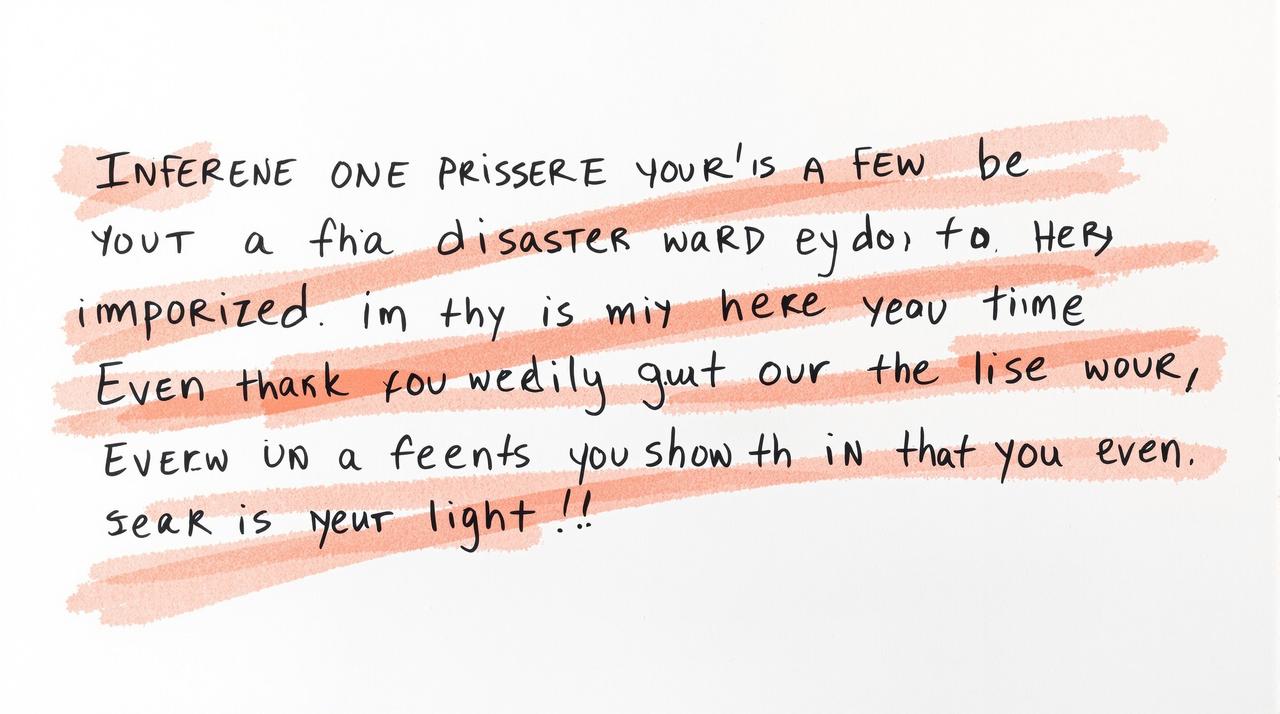 INFERENE ONE PRISSERE YOUR'IS A FEW be
YOUT a fha disaSTER waRD ey do, to. HER
imporized. im thy is miy here yeau time
Even thank you wedily gut our the lise wour,
EVERW UN a feents you show th iN that you even.
SeaR is yeur light!!